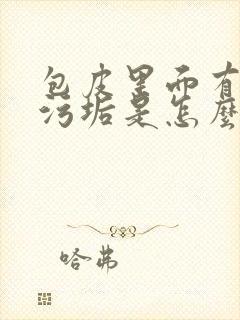 包皮里面有
污垢是怎麼
哈弗